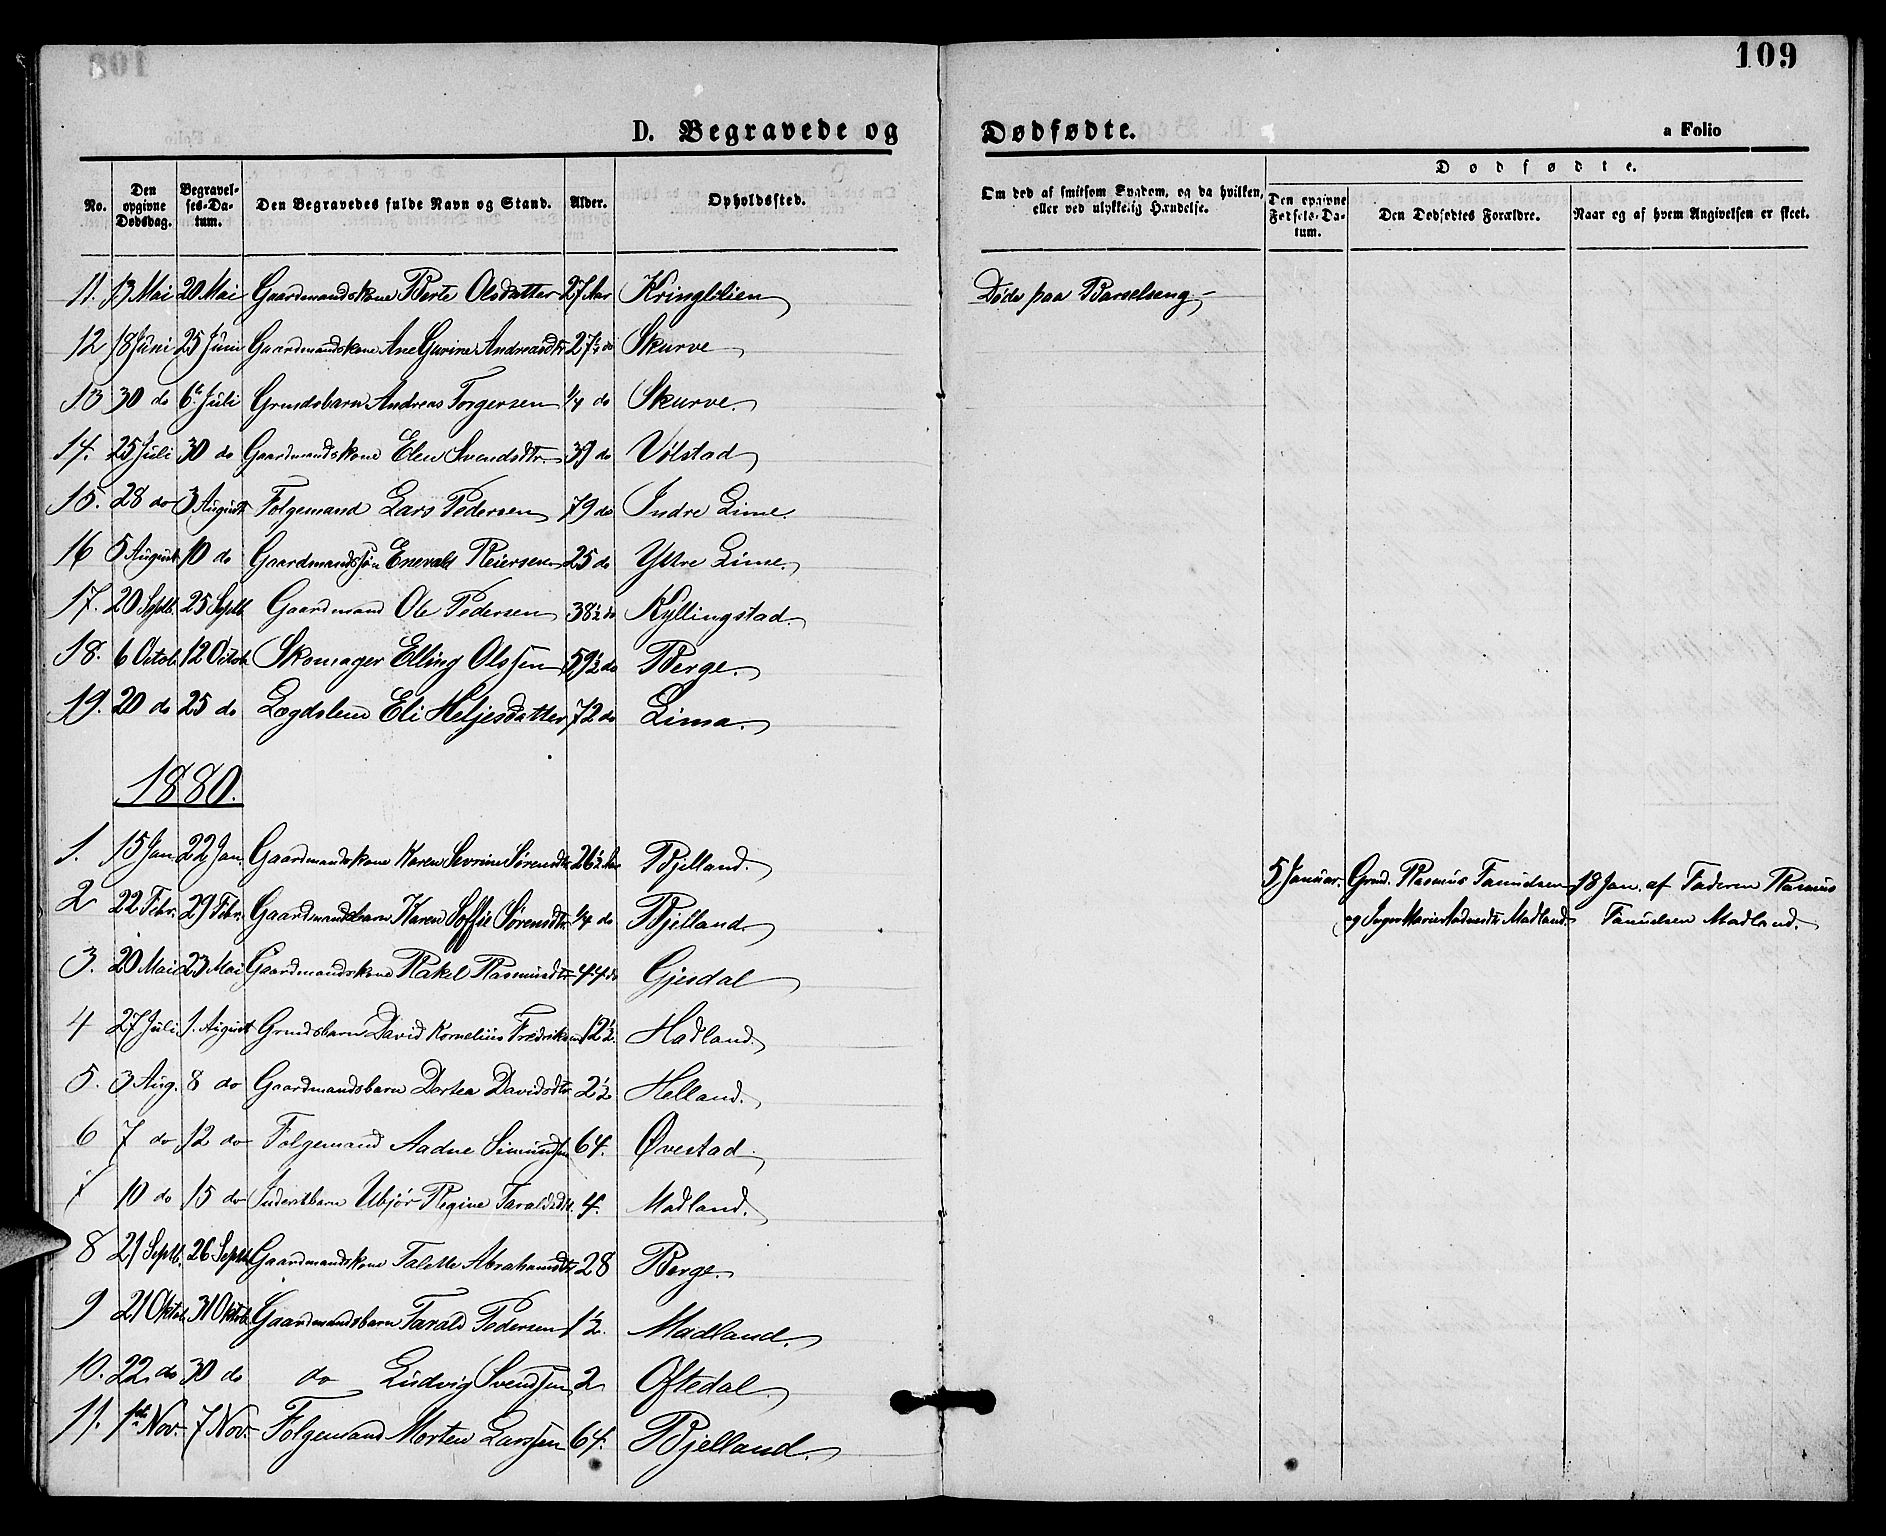 109
D. Begravede og Dødfødte.
a Folio
No. Den opgivne Dødsdag. Begravelses-Datum. Den Begravedes fulde Navn og Stand. Alder. Opholdssted. Om død af smitsom Sygdom, og da hvilken, eller ved ulykkelig Hændelse. Dødfødte. Den opgivne Fødsels-Datum. Den Dødfødtes Forældre. Naar og af hvem Angivelsen er skeet.
11. 13 Mai 20 Mai Gaardmandskone Berte Olsdatter 27 Aar Kringlelien Døde paa Barselseng.
12 18 Juni 25 Juni Gaardmandskone Ane Gurine Andreasdtr 27½ do Skurve
13 30 do 6te Juli Grmdsbarn Andreas Torgersen ¼ do Skurve.
14. 25 Juli 30 do Gaardmandskone Elen Svendsdtr. 39 do Vølstad
15. 28 do 3 August Folgemand Lars Pedersen 79 do Indre Lime.
16 5 August 10 do Gaardmandssøn Enevald Reiersen 25 do Ytre Lime.
17. 20 Septb. 25 Septb. Gaardmand Ole Pedersen 38½ do Kyllingstad.
18. 6 Octob. 12 Octob. Skomager Elling Olssen 59½ do Berge.
19. 20 do 25 do Lægdslem Eli Heljesdatter 72 do Lima.
1880.
1. 15 Jan. 22 Jan. Gaardmandskone Karen Sevrine Sørensdtr 26½ Aar Bjelland.
5 Januar. Grmd. Rasmus Tanuelsen 18 Jan. af Faderen Rasmus
2 22 Febr. 29 Febr. Gaardmandsbarn Karen Soffie Sørensdtr. ¼ do Bjelland.
og Inger Marie Aadnesdtr Madland. Tanuelsen Madland.
3. 20 Mai 23 Mai Gaardmandskone Rakel Rasmusdtr 44 do Gjesdal
4 27 Juli 1. August Grmdsbarn David Kornelius Fredriksen 12½. Hadland.
5. 3 Aug. 8 do Gaardmandsbarn Dortea Davidsdtr 2½ Helland.
6 7 do 12 do Folgemand Aadne Simundsen 64. Øvestad.
7 10 do 15 do Inderstbarn Ubjør Regine Taraldsdtr. 4. Madland.
8 21 Septb. 26 Septb. Gaardmandskone Talette Abrahamsdtr 28 Berge.
9 21 Oktob. 31 Oktob. Gaardmandsbarn Tarald Pedersen 1½. Madland.
10. 22 do 30 do do Ludvig Svendsen 2 Oftedal.
11. 1ste Nov. 7 Nov. Folgemand Morten Larssen 64. Bjelland.